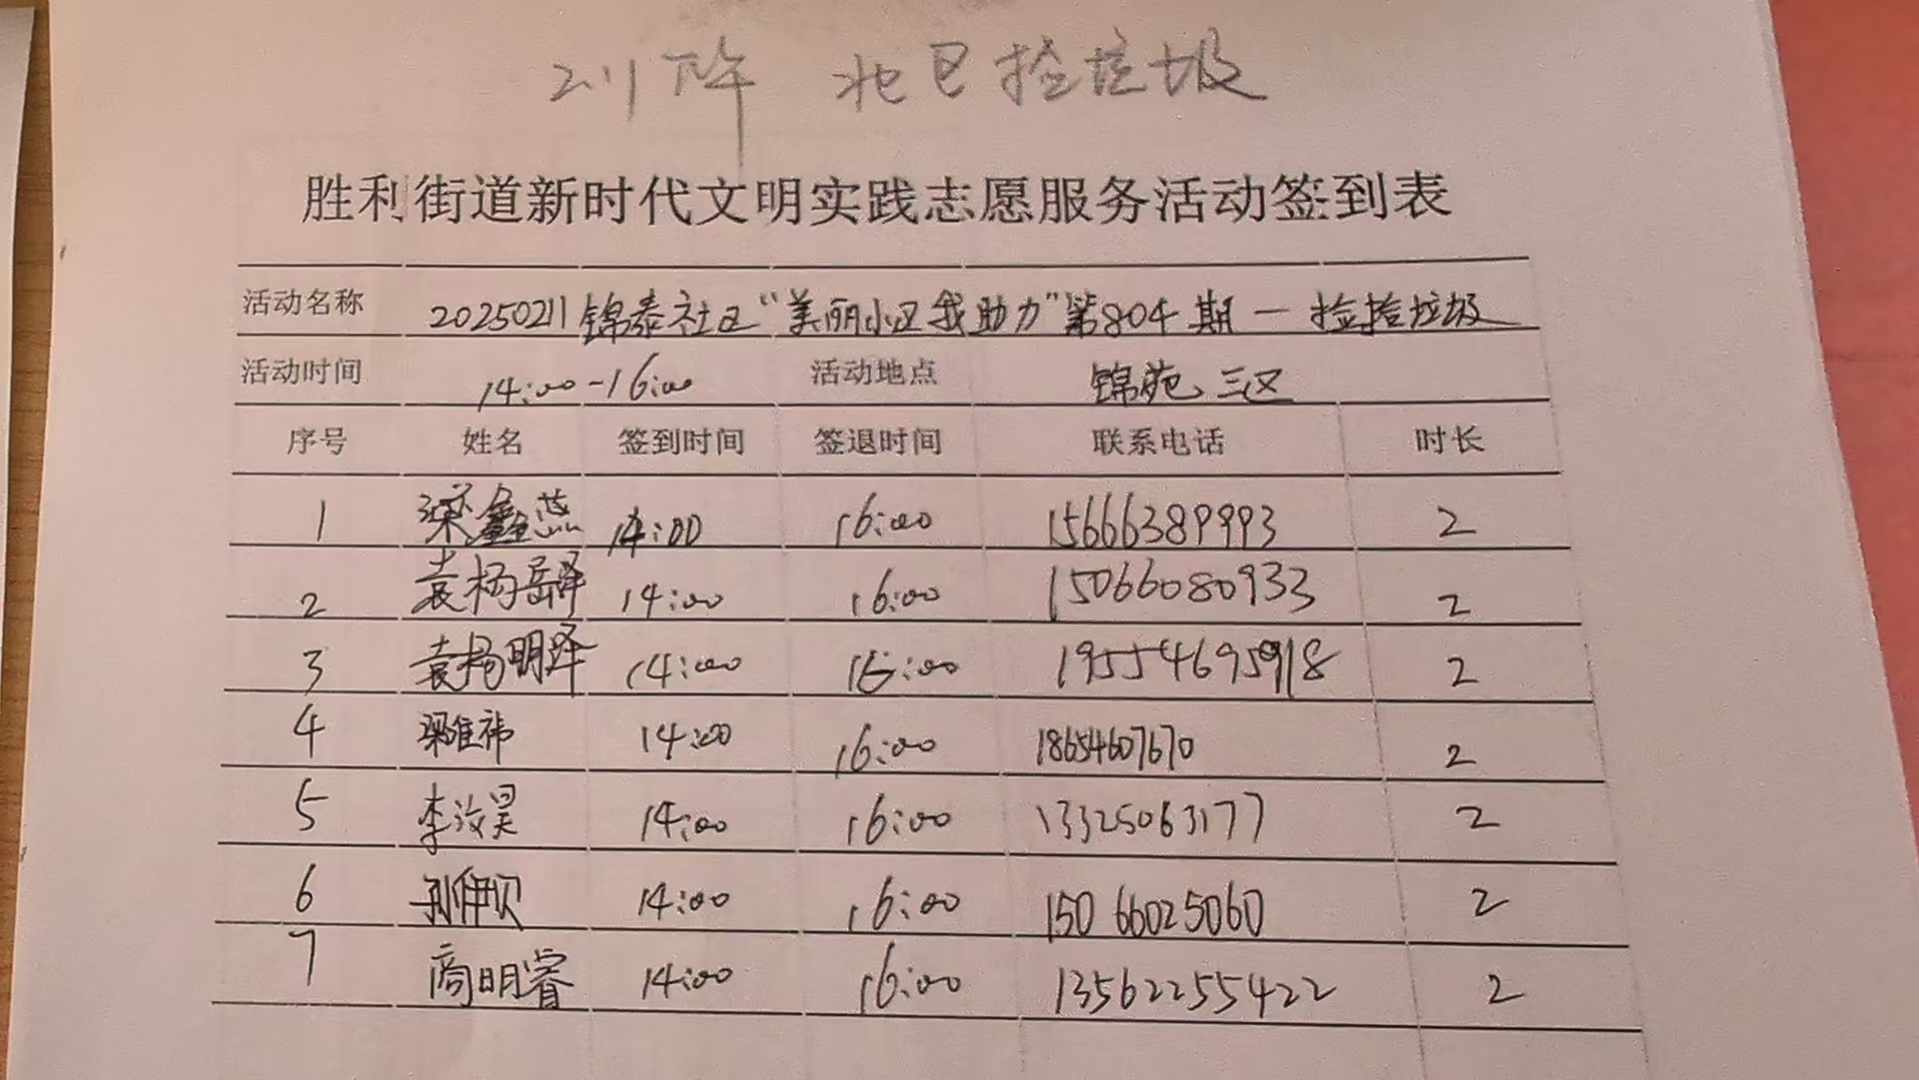 2.11下午 北巳捡垃圾
胜利街道新时代文明实践志愿服务活动签到表
活动名称 20250211锦泰社区“美丽小区我助力”第804期一捡捡垃圾
活动时间 14:00-16:00 活动地点 锦苑三区
序号 姓名 签到时间 签退时间 联系电话 时长
1 梁鑫燕 14:00 16:00 15666389993 2
2 袁杨岳泽 14:00 16:00 15066080933 2
3 袁杨明泽 14:00 16:00 19554695918 2
4 梁雅祎 14:00 16:00 18654607670 2
5 李汶昊 14:00 16:00 13325063177 2
6 孙伊贝 14:00 16:00 15066025060 2
7 商明睿 14:00 16:00 13562255422 2